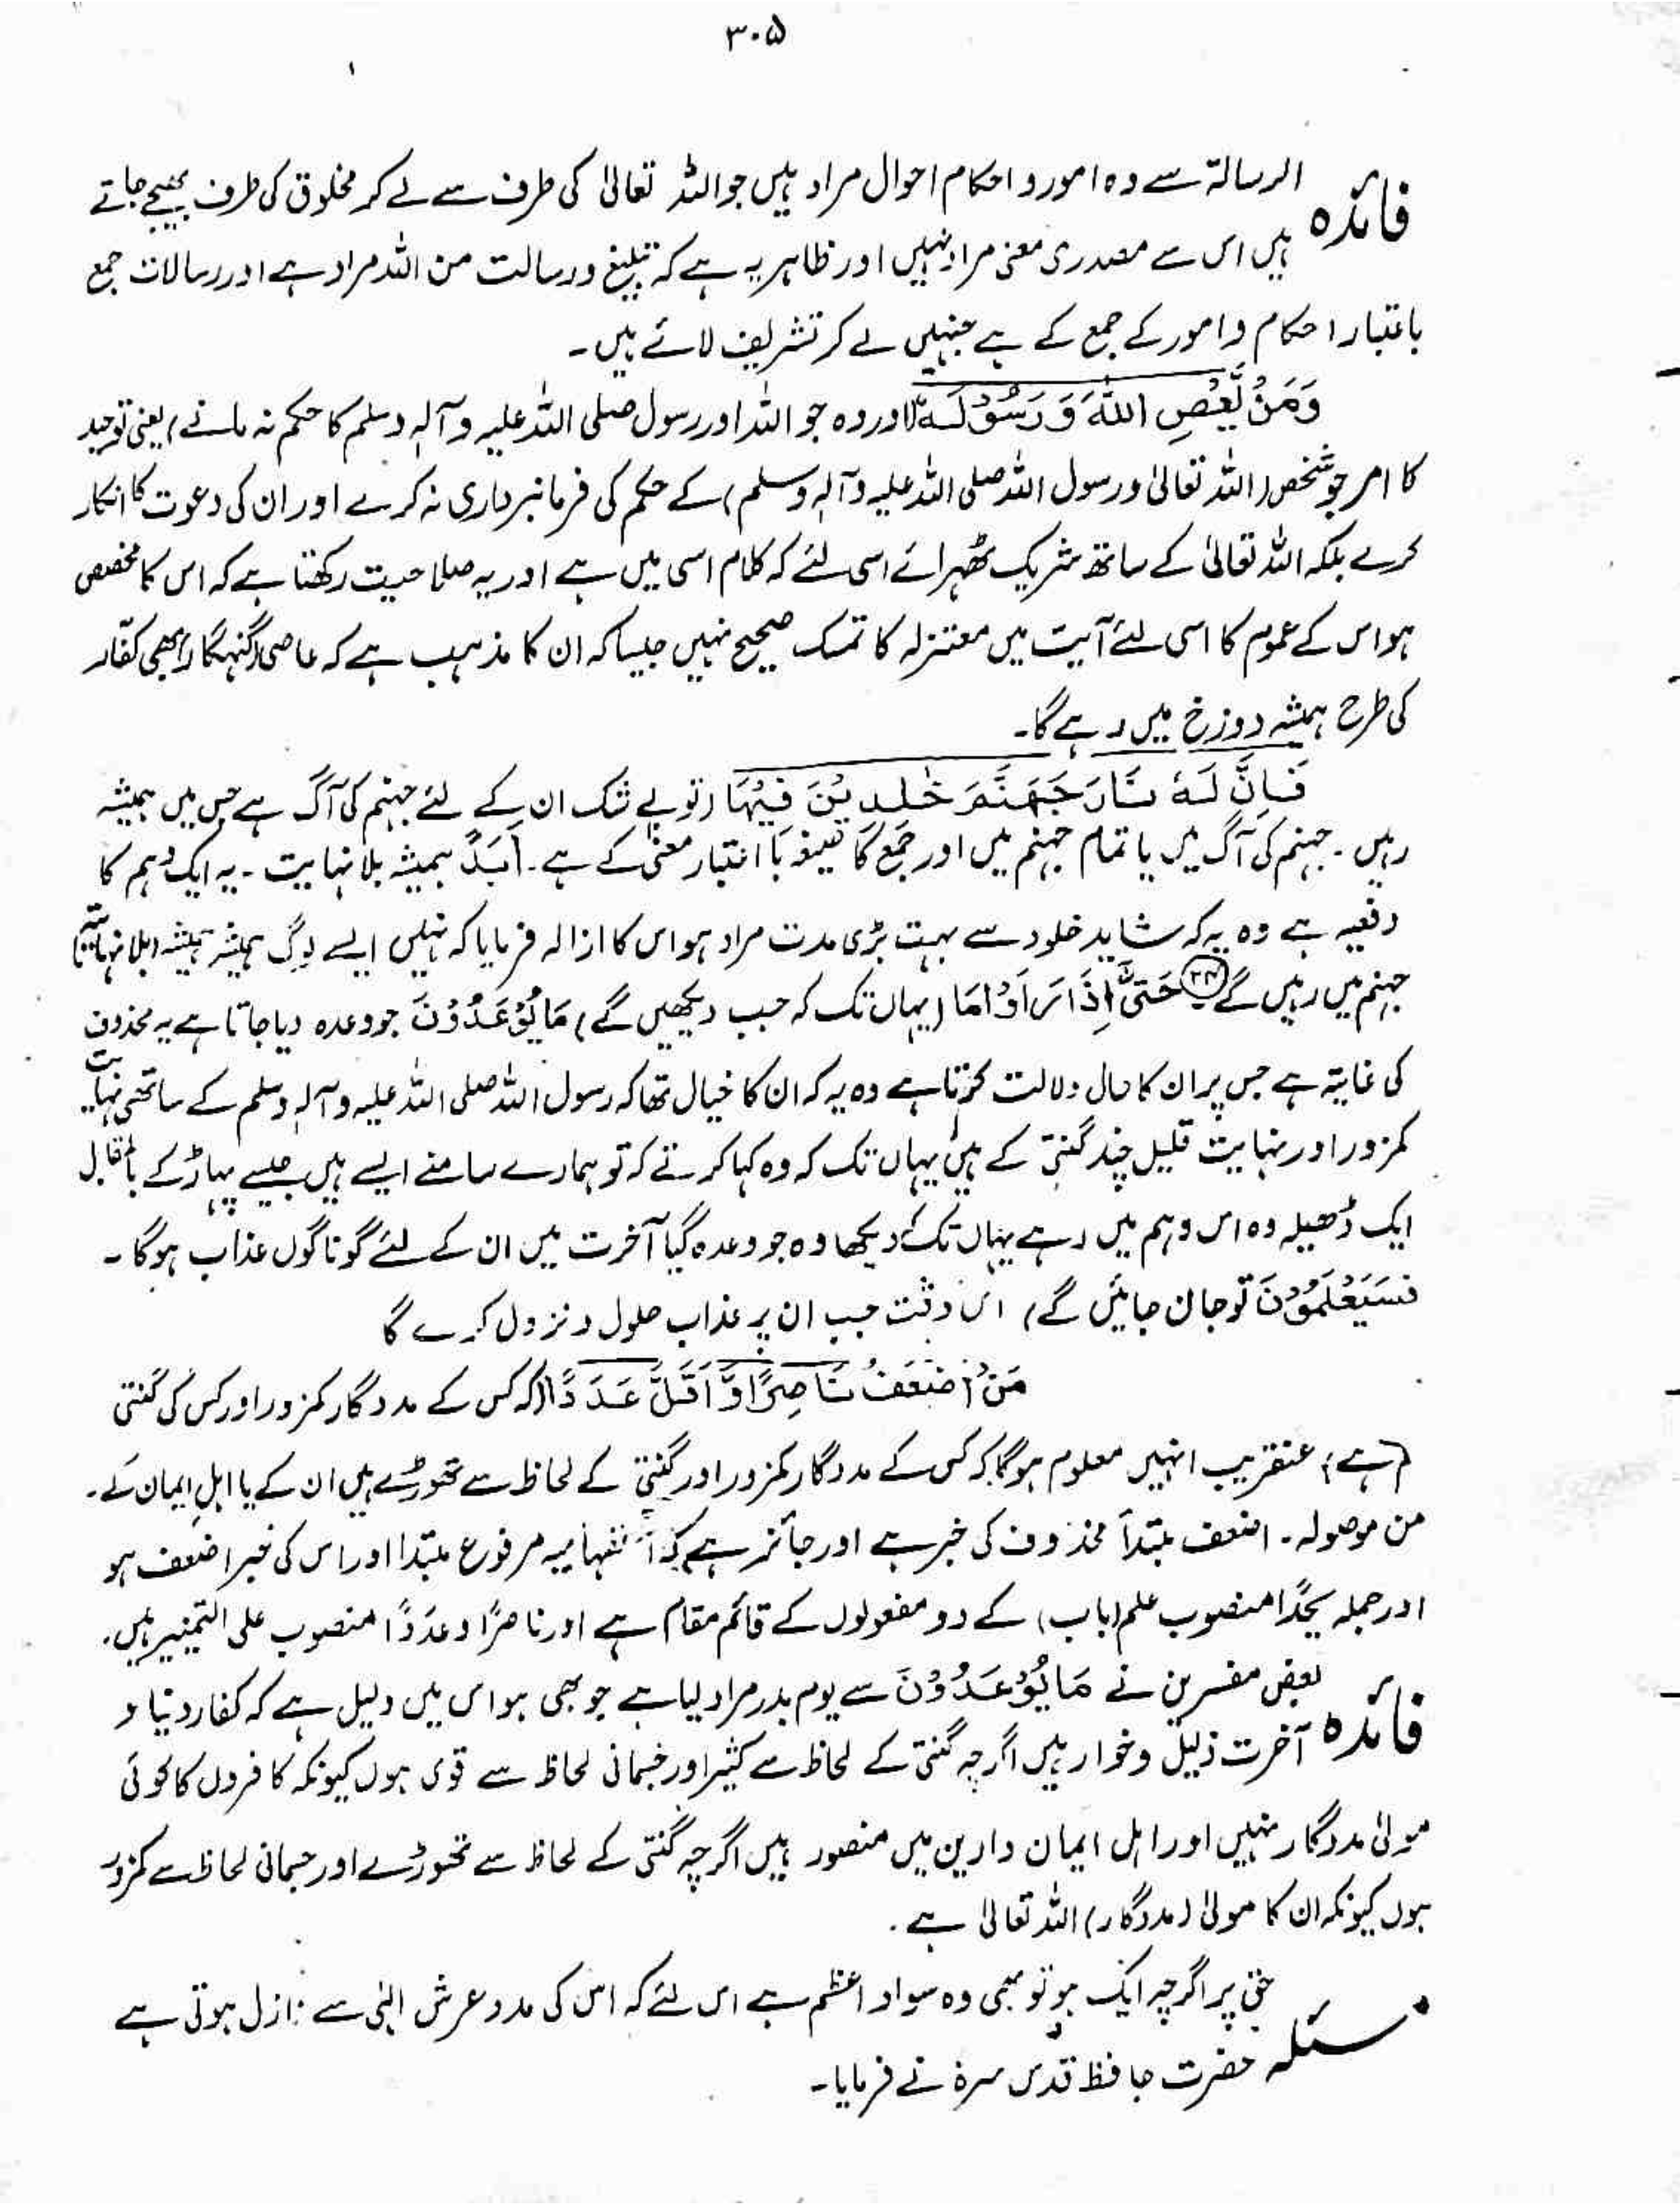 ۳۰۵
فائدہ الرسالۃ سے وہ امور و احکام احوال مراد ہیں جو اللہ تعالیٰ کی طرف سے لے کر مخلوق کی طرف بھیجے جاتے
ہیں اس سے مصدری معنی مراد نہیں اور ظاہر یہ ہے کہ تبلیغ و رسالت من اللہ مراد ہے اور رسالات جمع
باعتبار احکام و امور کے جمع کے ہے جنہیں لے کر تشریف لائے ہیں۔
وَمَنْ یَّعْصِ اللّٰہَ وَ رَسُوْلَہٗ (اور وہ جو اللہ اور رسول صلی اللہ علیہ و آلہٖ وسلم کا حکم نہ مانے) یعنی توحید
کا امر جو شخص (اللہ تعالیٰ و رسول اللہ صلی اللہ علیہ وآلہٖ وسلم) کے حکم کی فرمانبرداری نہ کرے اور ان کی دعوت کا انکار
کرے بلکہ اللہ تعالیٰ کے ساتھ شریک ٹھہرائے اسی لئے کہ کلام اسی میں ہے اور یہ صلاحیت رکھتا ہے کہ اس کا مخصص
ہو اس کے عموم کا اسی لئے آیت میں معتزلہ کا تمسک صحیح نہیں جیسا کہ ان کا مذہب ہے کہ عاصی (گنہگار) بھی کفار
کی طرح ہمیشہ دوزخ میں رہے گا۔
فَاِنَّ لَہٗ نَارَ جَہَنَّمَ خٰلِدِیْنَ فِیْہَا (تو بے شک ان کے لئے جہنم کی آگ ہے جس میں ہمیشہ
رہیں۔ جہنم کی آگ میں یا تمام جہنم میں اور جمع کا صیغہ با اعتبار معنیٰ کے ہے۔ اَبَدًا ہمیشہ بلا نہایت۔ یہ ایک وہم کا
دفعیہ ہے وہ یہ کہ شاید خلود سے بہت بڑی مدت مراد ہو اس کا ازالہ فرمایا کہ نہیں ایسے لوگ ہمیشہ ہمیشہ (بلا نہایت)
جہنم میں رہیں گے۔ حَتّٰۤی اِذَا رَاَوْا مَا (یہاں تک کہ جب دیکھیں گے) مَا یُوْعَدُوْنَ جو وعدہ دیا جاتا ہے یہ محذوف
کی غایۃ ہے جس پر ان کا حال دلالت کرتا ہے وہ یہ کہ ان کا خیال تھا کہ رسول اللہ صلی اللہ علیہ و آلہٖ وسلم کے ساتھی نہایت
کمزور اور نہایت قلیل چند گنتی کے ہیں یہاں تک کہ وہ کہا کرتے کہ تو ہمارے سامنے ایسے ہیں جیسے پہاڑ کے بالمقابل
ایک ڈھیلہ وہ اس وہم میں رہے یہاں تک کہ دیکھا وہ جو وعدہ گیا آخرت میں ان کے لئے گوناگوں عذاب ہوگا۔
فَسَیَعْلَمُوْنَ تو جان جائیں گے) اس وقت جب ان پر عذاب حلول و نزول کرے گا
مَنْ اَضْعَفُ نَاصِرًا وَّ اَقَلُّ عَدَدًا (کہ کس کے مددگار کمزور اور کس کی گنتی
کم ہے) عنقریب انہیں معلوم ہوگا کہ کس کے مددگار کمزور اور گنتی کے لحاظ سے تھوڑے ہیں ان کے یا اہل ایمان کے۔
من موصولہ۔ اضعف مبتدأ محذوف کی خبر ہے اور جائز ہے کہ استفہامیہ مرفوع مبتدا اور اس کی خبر اضعف ہو
اور جملہ محلًا منصوب علم (باب) کے دو مفعولوں کے قائم مقام ہے اور ناصرًا و عددًا منصوب علی التمییز ہیں۔
فائدہ بعض مفسرین نے مَا یُوْعَدُوْنَ سے یوم بدر مراد لیا ہے جو بھی ہو اس میں دلیل ہے کہ کفار دنیا و
آخرت ذلیل و خوار ہیں اگرچہ گنتی کے لحاظ سے کثیر اور جسمانی لحاظ سے قوی ہوں کیونکہ کافروں کا کوئی
مولیٰ مددگار نہیں اور اہل ایمان دارین میں منصور ہیں اگرچہ گنتی کے لحاظ سے تھوڑے اور جسمانی لحاظ سے کمزور
ہوں کیونکہ ان کا مولیٰ (مددگار) اللہ تعالیٰ ہے۔
مسئلہ حق پر اگرچہ ایک ہو تو بھی وہ سواد اعظم ہے اس لئے کہ اس کی مدد عرش الٰہی سے نازل ہوتی ہے
حضرت حافظ قدس سرہٗ نے فرمایا۔